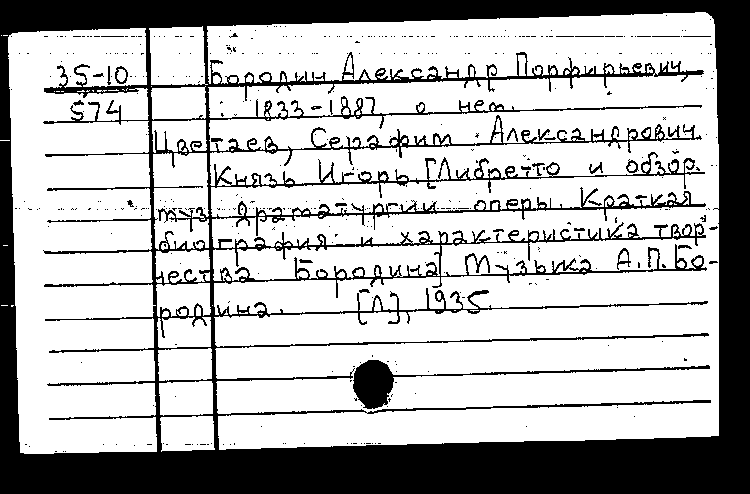 35-10 Бородин, Александр Порфирьевич,
574 : 1833-1887, о нем.
Цветаев, Серафим Александрович.
Князь Игорь. [Либретто и обзор
муз. драматургии оперы. Краткая
биография и характеристика твор-
чества Бородина]. Музыка А.П.Бо-
родина. [Л], 1935.